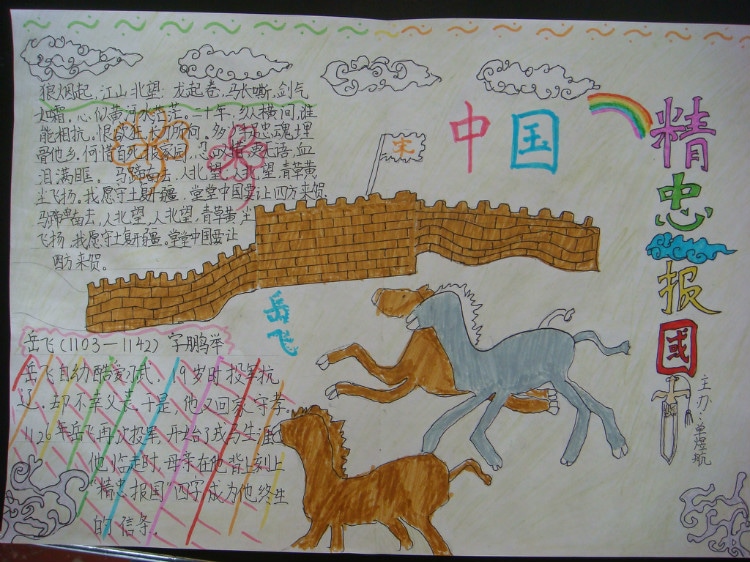 狼烟起,江山北望 龙起卷,马长嘶,剑气
如霜,心似黄河水茫茫.二十年,纵横间,谁
能相抗.恨欲狂,长刀所向.多少手足忠魂埋
骨他乡.何惜百死报家国,忍叹惜,更无语,血
泪满眶. 马蹄南去,人北望,人北望,青草黄
尘飞扬.我愿守土复开疆,堂堂中国要让四方来贺
马蹄南去,人北望,人北望,青草黄,尘
飞扬.我愿守土复开疆.堂堂中国要让
四方来贺.
宋
中国
精忠报国
岳飞
岳飞(1103—1142) 字鹏举
岳飞自幼酷爱习武. 19岁时投军抗
辽.却不幸父丧,于是,他又回家守孝.
1126年岳飞再次投军,开始了戎马生涯
他临走时,母亲在他背上刻上
"精忠报国"四字成为他终生
的信条.
主办: